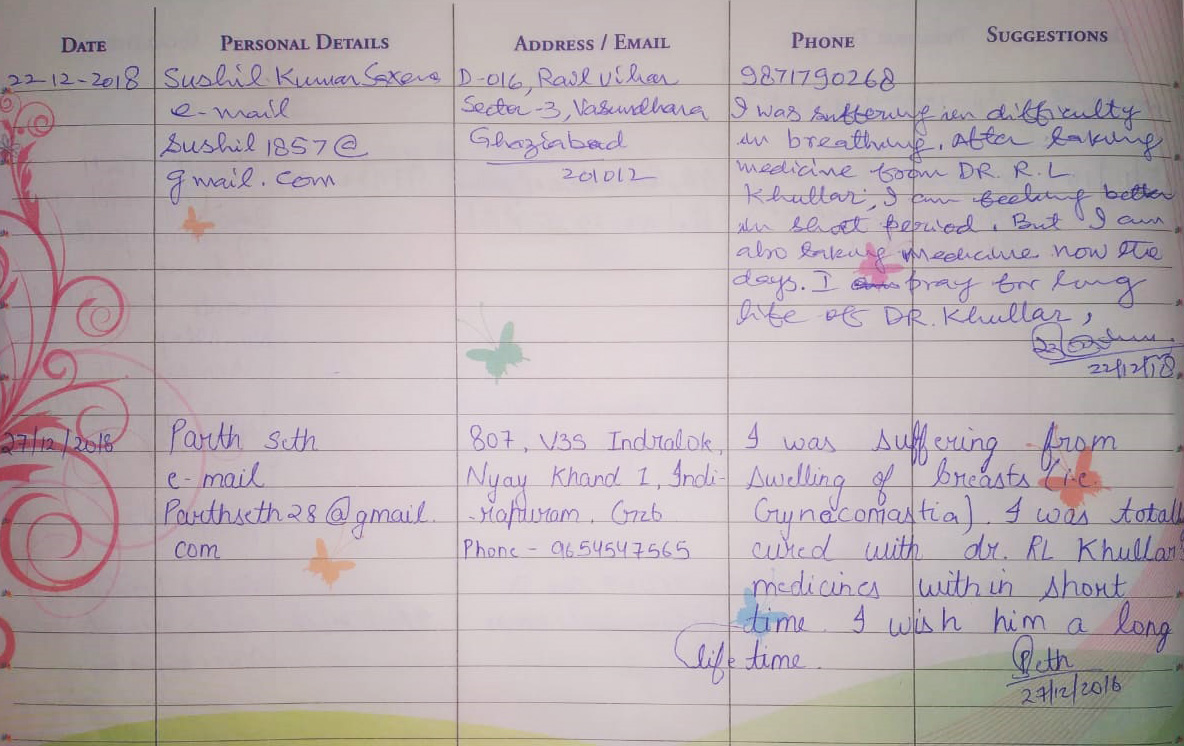 DATE PERSONAL DETAILS ADDRESS / EMAIL PHONE SUGGESTIONS
22-12-2018 Sushil Kumar Saxena D-016, Rail Vihar 9871790268
e-mail Sector-3, Vasundhara I was suffering in difficulty
Sushil1857@ Ghaziabad in breathing. After taking
gmail.com 201012 medicine from DR. R.L
Khullar, I am feeling better
in short period. But I am
also taking medicine now the
days. I pray for long
life of DR. Khullar,
22/12/18
27/12/2018 Parth Seth 807, V3S Indralok, I was suffering from
e-mail Nyay Khand 1, Indi- swelling of breasts (i.e.
Parthseth28@gmail. -rapuram, Gzb Gynecomastia). I was totall
com Phone - 9654547565 cured with dr. RL Khullar's
medicines within short
time. I wish him a long
life time.
Seth
27/12/2018